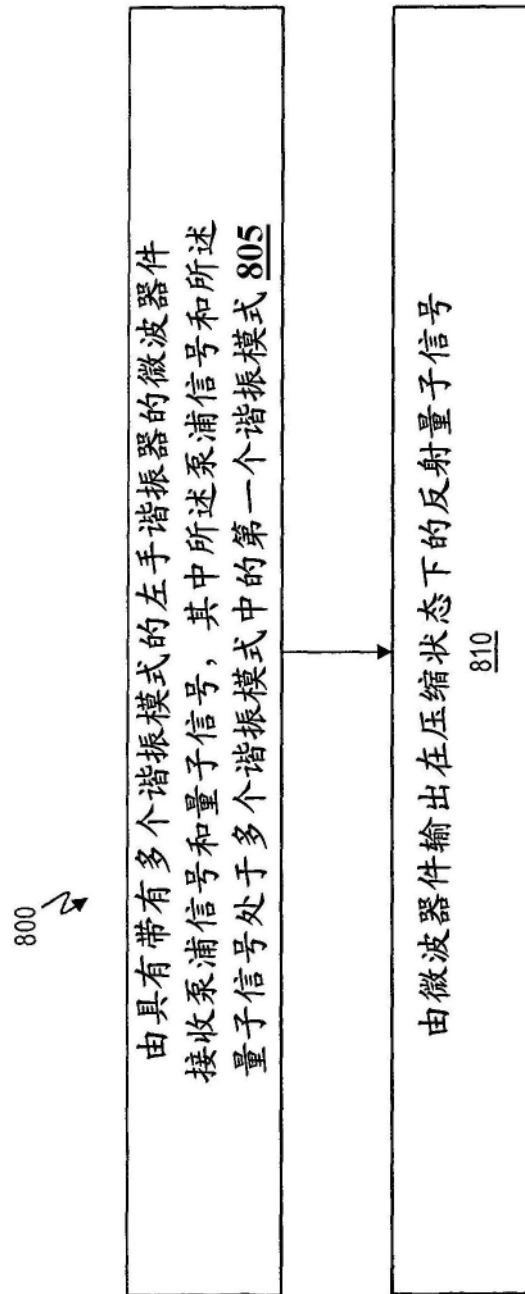 800
由具有带有多个谐振模式的左手谐振器的微波器件
接收泵浦信号和量子信号，其中所述泵浦信号和所述
量子信号处于多个谐振模式中的第一个谐振模式 805
由微波器件输出在压缩状态下的反射量子信号
810